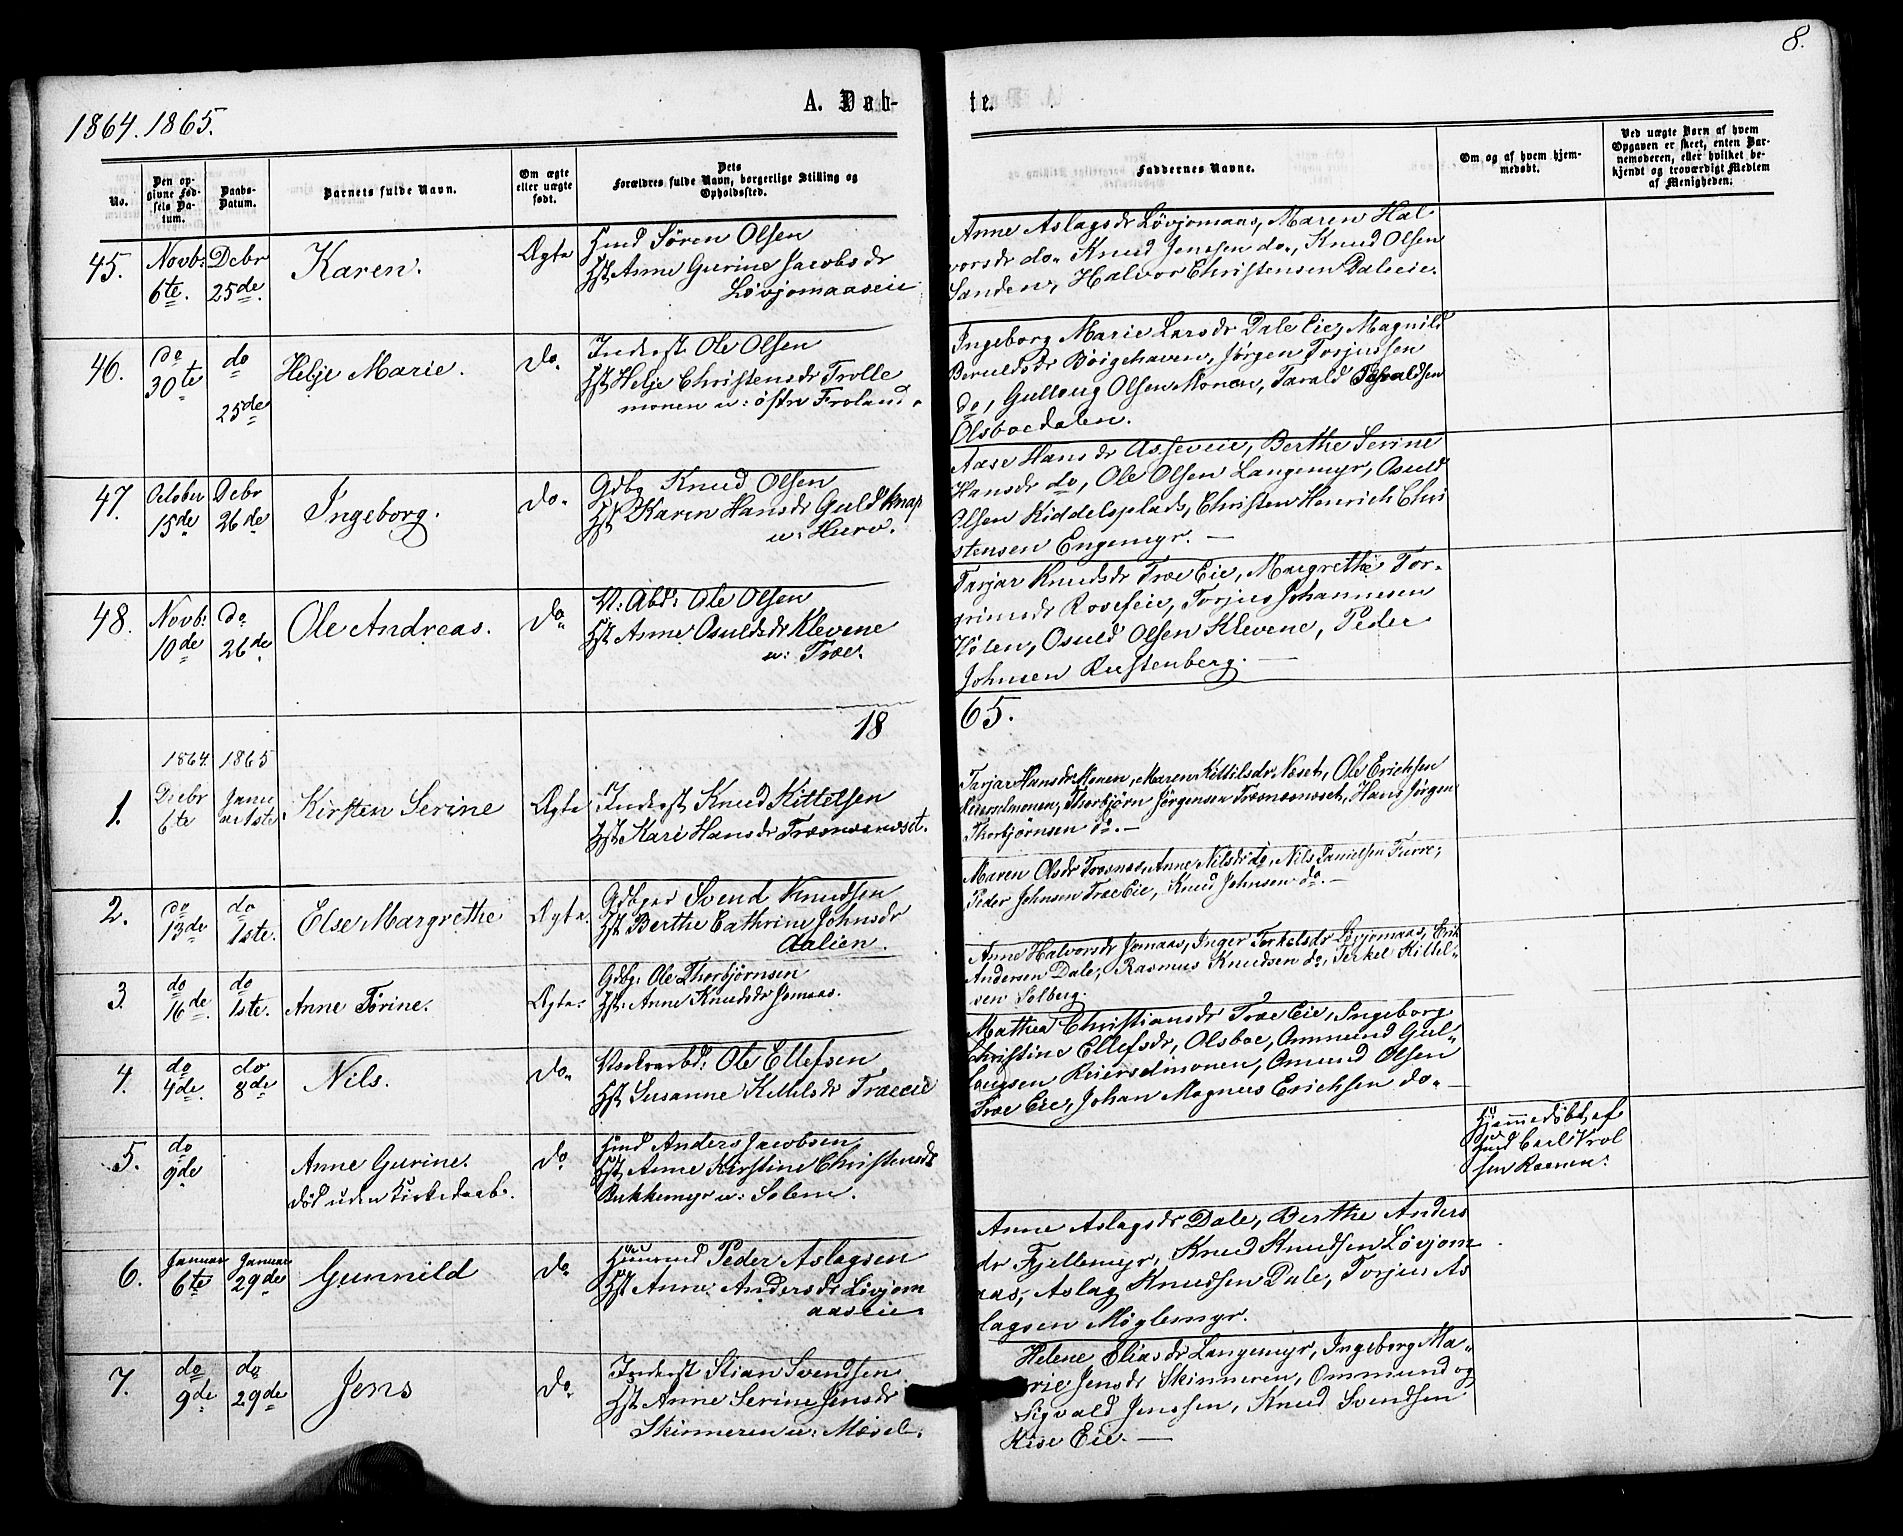 8.
1864. 1865.
A. Døb-
te.
No.
Den op-
givne Fød-
sels Da-
tum.
Daabs-
Datum.
Barnets fulde Navn.
Om ægte
eller uægte
født.
Dets
Forældres fulde Navn, borgerlige Stilling og
Opholdssted.
Faddernes Navne.
Om og af hvem hjem-
medøbt.
Ved uægte Børn af hvem
Opgaven er skeet, enten Bar-
nemoderen, eller hvilket be-
kjendt og troværdigt Medlem
af Menigheden.
45.
Novb:
6te.
Debr
25de.
Karen.
Ægte
Hmd Søren Olsen
Hst Anne Gurine Jacobsdr
Løvjomaaseie
Anne Aslagsdr Løvjomaas, Maren Hal
vorsdr do. Knud Jenssen do., Knud Olsen
Sanden, Halvor Christensen Daleeie.
46.
do
30te
do
25de
Helje Marie.
do.
Inderst Ole Olsen
Hst Helje Christensdr Trolle
monen u: østre Froland.
Ingeborg Marie Larsdr Dale Eie, Magnild
Beruldsdr Bøigehaven, Jørgen Torjussen
do, Gulloug Olsen Monen, Tarald Taraldsen
Olsboedalen.
47.
October
15de
Debr
26de
Ingeborg.
do.
Gdbg Knud Olsen
Hst Karen Hansdr Guldknap
u: Hurv.
Aase Hansdr Asseveie, Berthe Serine
Hansdr do, Ole Olsen Langemyr, Osuld
Olsen Kiddelsplads, Christen Henrich Chri
stensen Engemyr. —
48.
Novb:
10de
do
26de
Ole Andreas.
do
V: Abd: Ole Olsen
Hst Anne Osuldsdr Klevene
u: Træe.
Tarjar Knudsdr Træe Eie, Margrethe Tor-
grimsdr Roseseie, Torjus Johannesen
Hølen, Osuld Olsen Klevene, Peder
Johnsen Rustenberg. —
18
65.
1864. 1865
1.
Debr
6te
Janu
ar 1ste
Kirsten Serine
Ægte
Inderst Knud Kittelsen
Hst Kari Hansdr Træsnæsnæset.
Tarjar Hansdr Monen, Maren Kittilsdr Næset, Ole Erichsen
Reierselmonen, Thorbjørn Jørgensen Træsnæsnæset, Hans Jørgen
Thorbjørnsen do. —
2.
do
13de
do
1ste.
Else Margrethe
Ægte.
Gdbger Svend Knudsen
Hst Berthe Cathrine Johnsdr
Aalien.
Maren Olsdr Træsnæs, Anne Nilsdr do, Nils Danielsen Furre,
Peder Johnsen Træe Eie, Knud Johnsen do. —
3.
do
16de.
do
1ste.
Anne Torine.
Ægte.
Gdbg: Ole Thorbjørnsen
Hst: Anne Knudsdr Jomaas.
Anne Halvorsdr Jomaas, Inger Terkelsdr Løvjomaas, Erik
Andersen Dale, Rasmus Knudsen do, Terkel Kittel-
sen Solberg.
4.
do
4de.
do
8de
Nils.
do.
Veiarbd: Ole Ellefsen
Hst Susanne Kittilsdr Træeeie
Mathea Christiansdr Træe Eie, Ingeborg
Christine Ellefsdr, Olsboe, Ommund Gul-
laugsen Reierselmonen, Omund Olsen
Træe Eie, Johan Magnus Erichsen do. —
5.
do
9de
Anne Gurine.
død uden Kirkedaab.
do
Hmd Anders Jacobsen
Hst Anne Kirstine Christensdr
Bukkemyr u: Solem.
Hjemmedøbt af
Gmd Carl Vrol
sen Raanen.
6.
Januar
6te
Januar
29de
Gunnild
do
Huusmd Peder Aslagsen
Hst Anne Andersdr Løvjom
aaseie.
Anne Aslagsdr Dale, Berthe Anders
dr Fjellemyr, Knud Knudsen Løvjom
aas, Aslag Knudsen Dale, Torjus As
lagsen Møglemyr.
7.
do
9de
do
29de
Jens
do
Inderst Stian Svendsen
Hst Anne Serine Jensdr
Skinneren u: Mæsel.
Helene Eliasdr Langemyr, Ingeborg Ma-
rie Jensdr Skinneren, Ommund og
Sigvald Jenssen, Knud Svendsen
Rise Eie. —